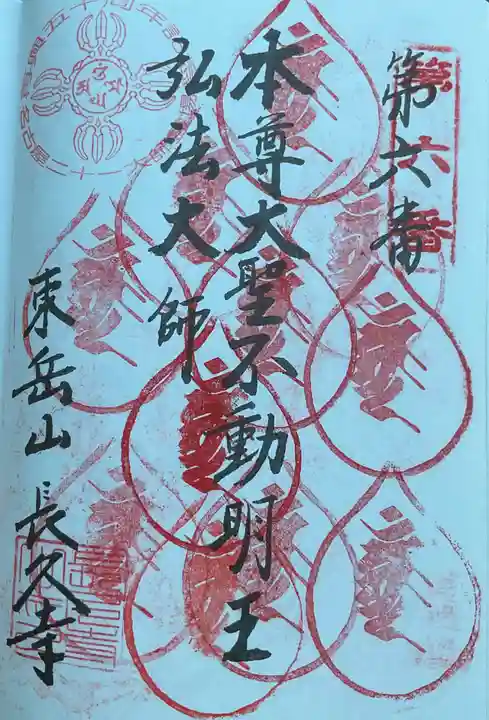 第六番
第六番
本尊大聖不動明王
弘法大師
東岳山 長久寺